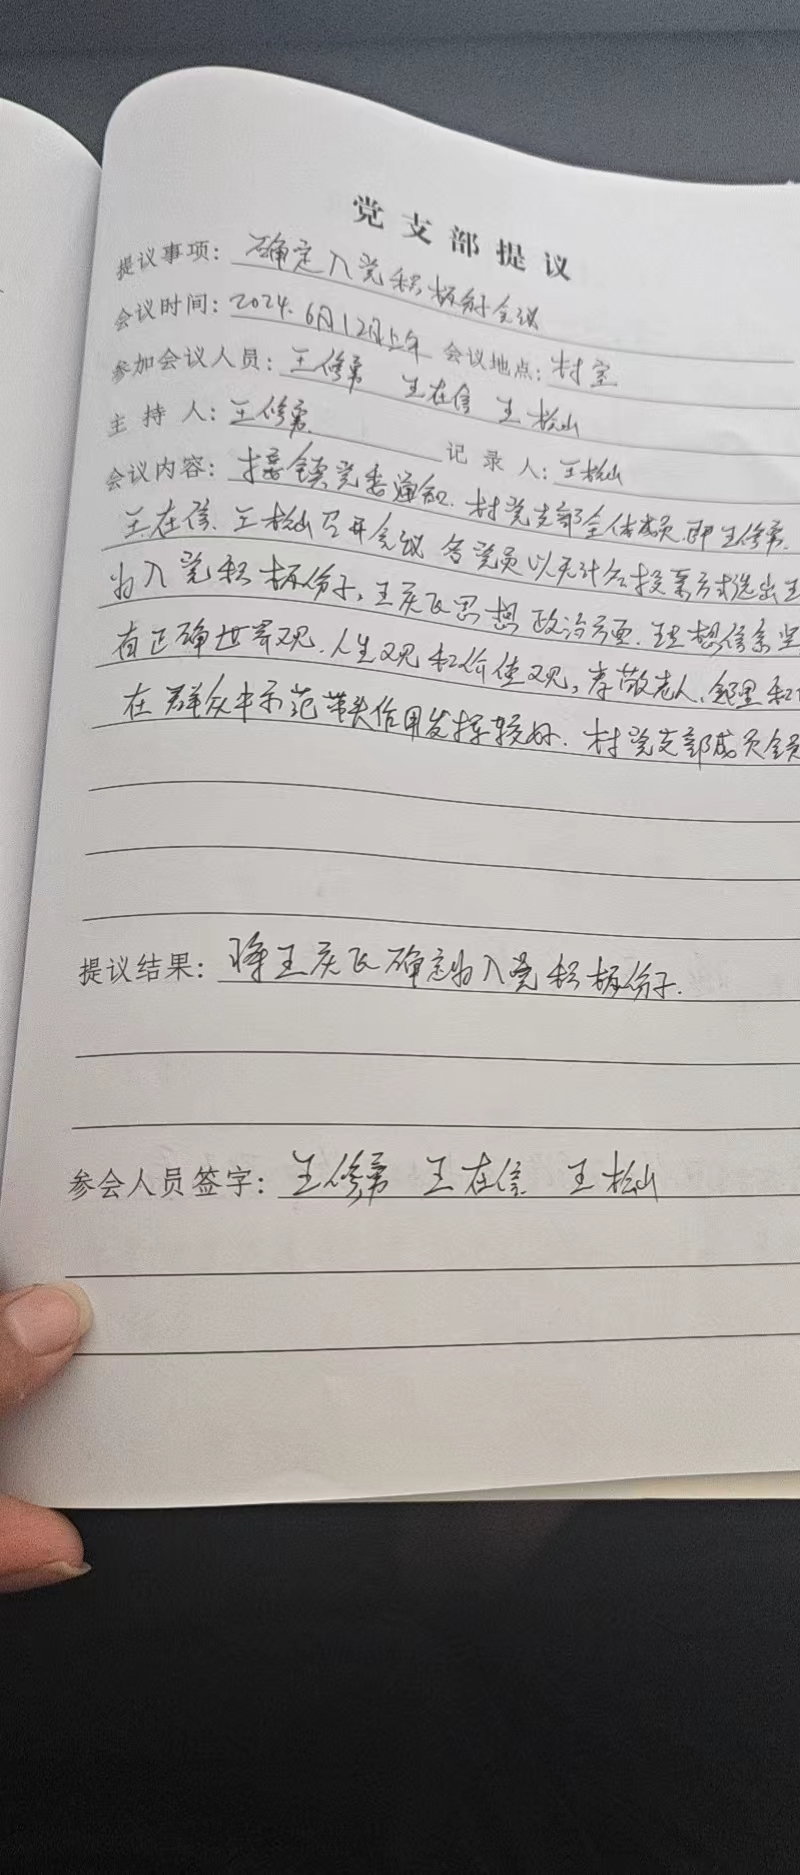 党支部提议
提议事项：确定入党积极份子会议
会议时间：2024.6月12日上午 会议地点：村室
参加会议人员：王修勇 王在信 王松山
主持人：王修勇 记录人：王松山
会议内容：接镇党委通知.村党支部全体成员.即王修勇.
王在信.王松山召开会议 各党员以无计名投票方式选出王
为入党积极份子,王庆飞思想政治方面.理想信念坚
有正确世界观.人生观和价值观,孝敬老人,邻里和
在群众中示范带头作用发挥较好.村党支部成员全
提议结果：将王庆飞确定为入党积极份子.
参会人员签字：王修勇 王在信 王松山